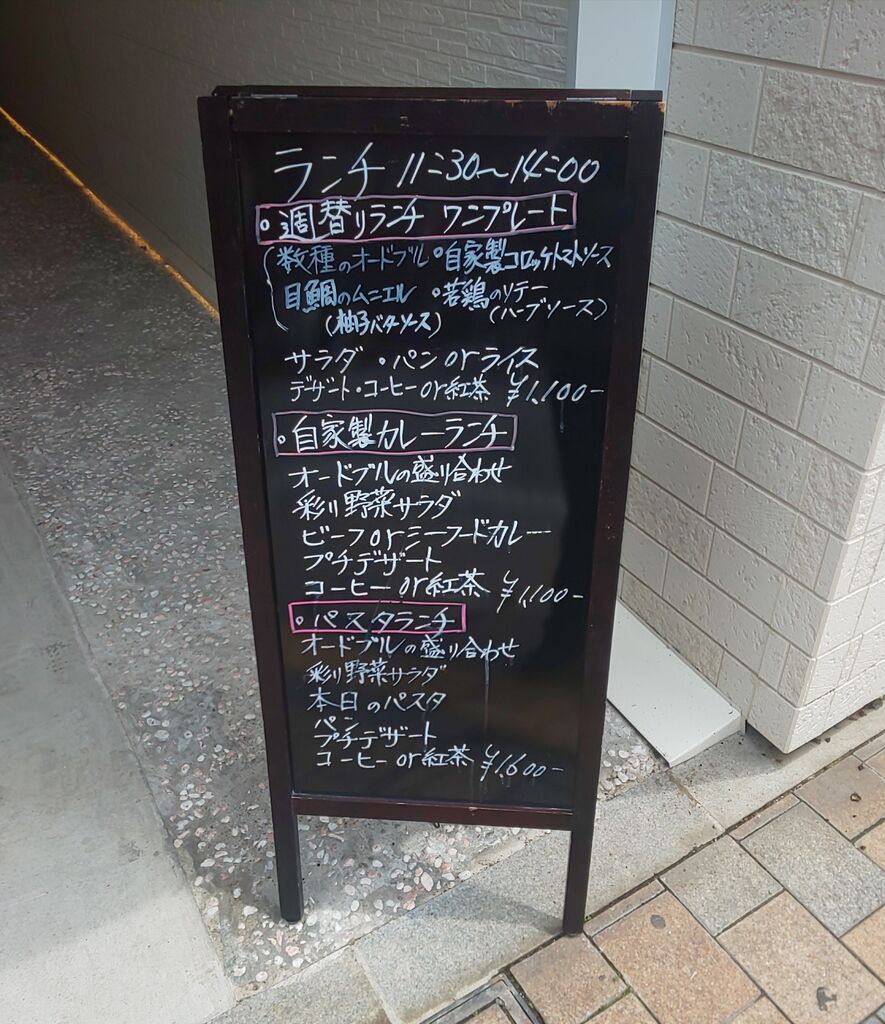 ランチ 11:30〜14:00
・週替りランチ ワンプレート
数種のオードブル ・自家製コロッケトマトソース
目鯛のムニエル ・若鶏のソテー
(柚子バターソース) (ハーブソース)
サラダ ・パン or ライス
デザート・コーヒー or 紅茶 ¥1,100-
・自家製カレーランチ
オードブルの盛り合わせ
彩り野菜サラダ
ビーフ or シーフードカレー
プチデザート
コーヒー or 紅茶 ¥1,100-
・パスタランチ
オードブルの盛り合わせ
彩り野菜サラダ
本日のパスタ
パン
プチデザート
コーヒー or 紅茶 ¥1,600-